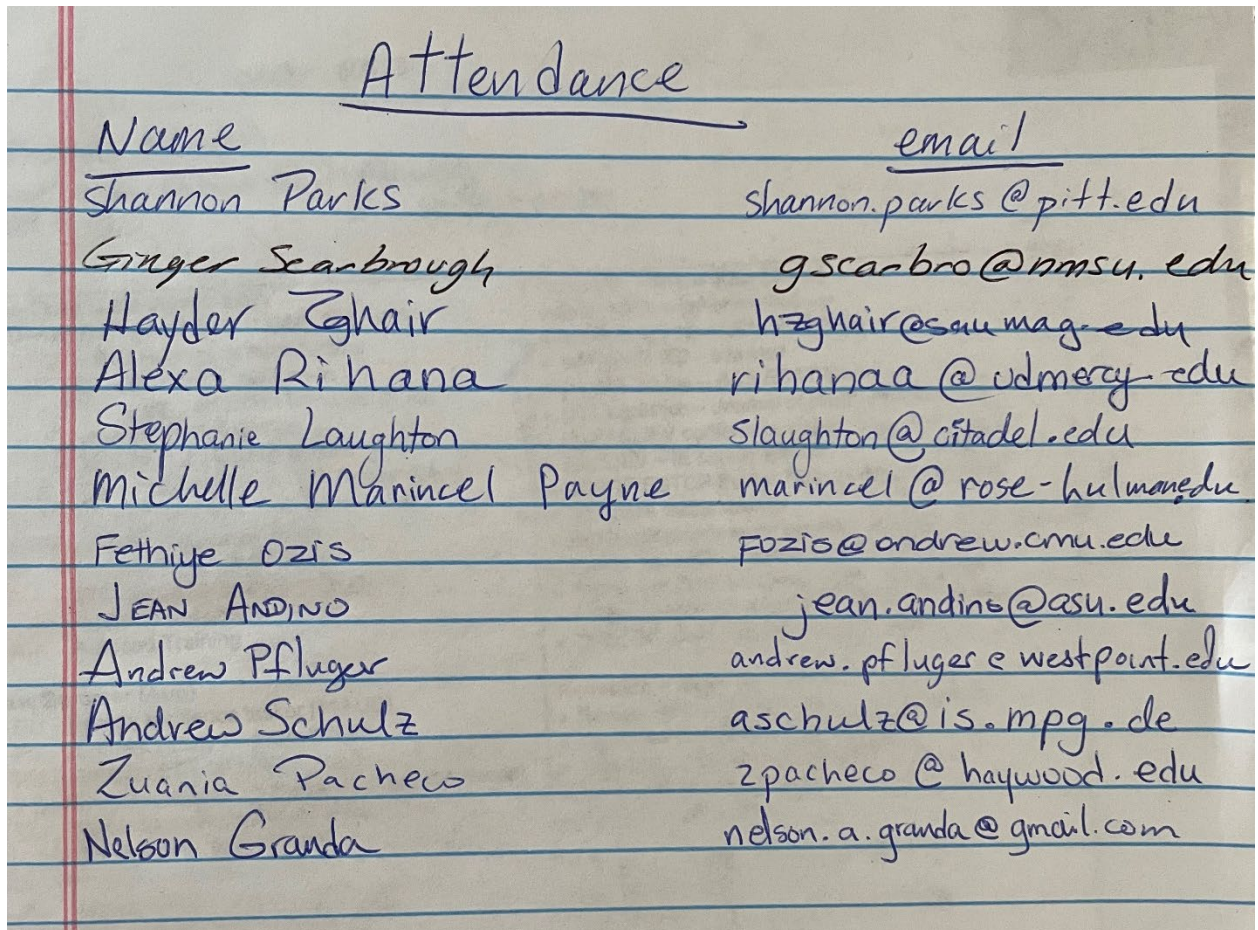 Attendance
Name email
Shannon Parks shannon.parks@pitt.edu
Ginger Scarbrough gscarbro@nmsu.edu
Hayder Zghair hzghair@saumag.edu
Alexa Rihana rihanaa@udmercy.edu
Stephanie Laughton slaughton@citadel.edu
Michelle Marincel Payne marincel@rose-hulman.edu
Fethiye Ozis Fozis@andrew.cmu.edu
JEAN ANDINO jean.andino@asu.edu
Andrew Pfluger andrew.pfluger@westpoint.edu
Andrew Schulz aschulz@is.mpg.de
Zuania Pacheco zpacheco@haywood.edu
Nelson Granda nelson.a.granda@gmail.com